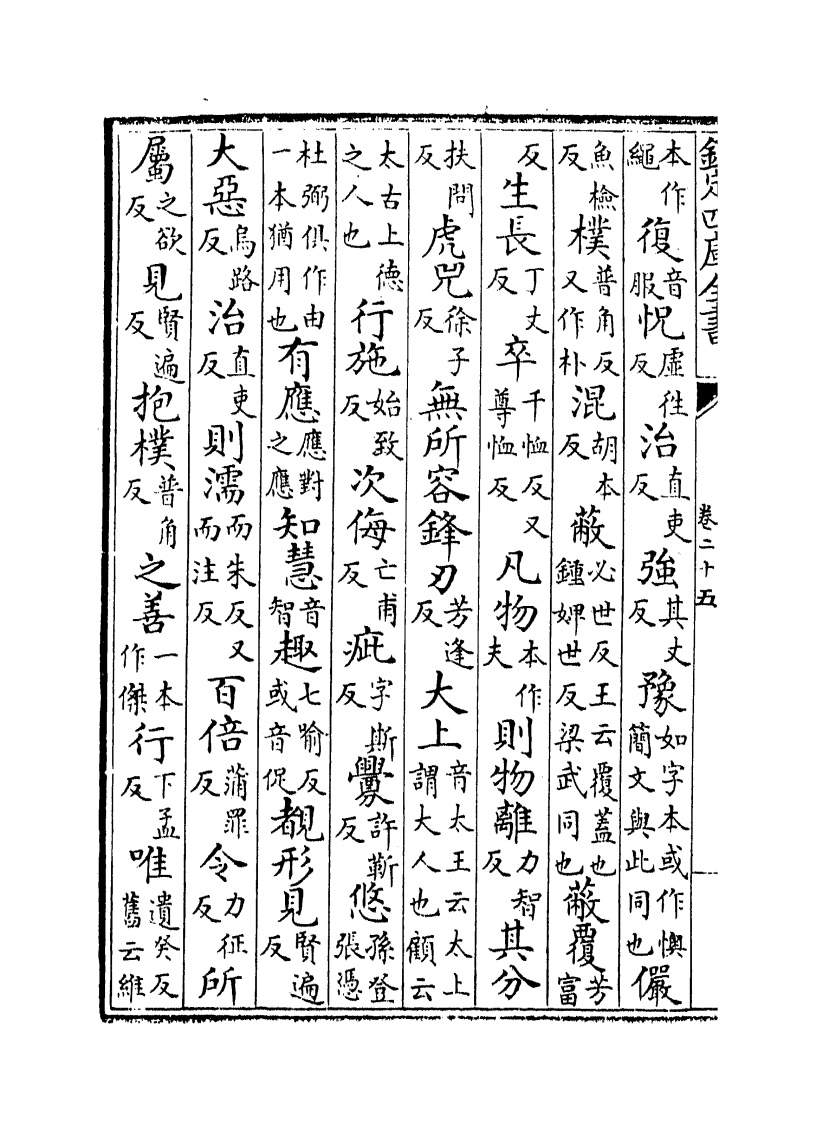 欽定四庫全書
卷二十五
本作繩復音服怳虛徃反治直吏反強其丈反豫如字本或作懙簡文與此同也儼
魚檢反樸普角反又作朴混胡本反蔽必世反王云覆蓋也鍾婢世反梁武同也蔽覆芳富
反生長丁丈反卒千恤反又尊恤反凡物本作夫則物離力智反其分
扶問反虎兕徐子反無所容鋒刃芳逢反大上音太王云太上謂大人也顧云
太古上德之人也行施始致反次侮亡甫反疵字斯反釁許靳反悠孫登張憑
杜弼俱作由一本猶用也有應應對之應知慧音智趣七喻反或音促覩形見賢遍反
大惡烏路反治直吏反則濡而朱反又而注反百倍蒲罪反令力征反所
屬之欲反見賢遍反抱樸普角反之善一本作傑行下孟反唯遺癸反舊云維